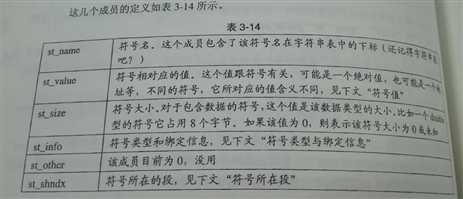 这几个成员的定义如表 3-14 所示。
表 3-14
st_name 符号名。这个成员包含了该符号名在字符串表中的下标（还记得字符串表
吧？）
st_value 符号相对应的值。这个值跟符号有关，可能是一个绝对值，也可能是一个地
址等，不同的符号，它所对应的值含义不同，见下文“符号值”
st_size 符号大小。对于包含数据的符号，这个值是该数据类型的大小。比如一个 double
型的符号它占用 8 个字节。如果该值为 0，则表示该符号大小为 0 或未知
st_info 符号类型和绑定信息，见下文“符号类型与绑定信息”
st_other 该成员目前为 0，没用
st_shndx 符号所在的段，见下文“符号所在段”